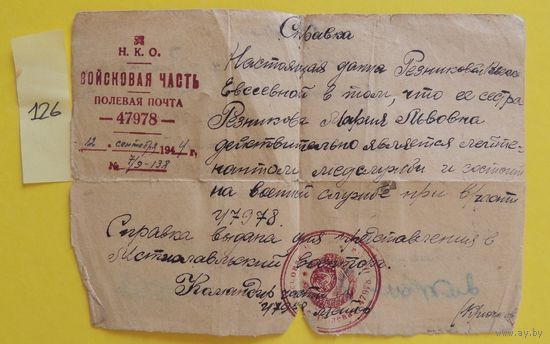 126
Н. К. О.
ВОЙСКОВАЯ ЧАСТЬ
ПОЛЕВАЯ ПОЧТА
— 47978 —
12. сентября 1944 г.
№ 7/9-138
Справка
Настоящая дана Резниковой
Евсеевной в том, что ее сестра
Резникова Мария Львовна
действительно является лейте-
нантом медслужбы и состоит
на военной службе при в/части
47978.
Справка выдана для представления в
Мстиславльский
Командир части
47978 Майор
www.ay.by